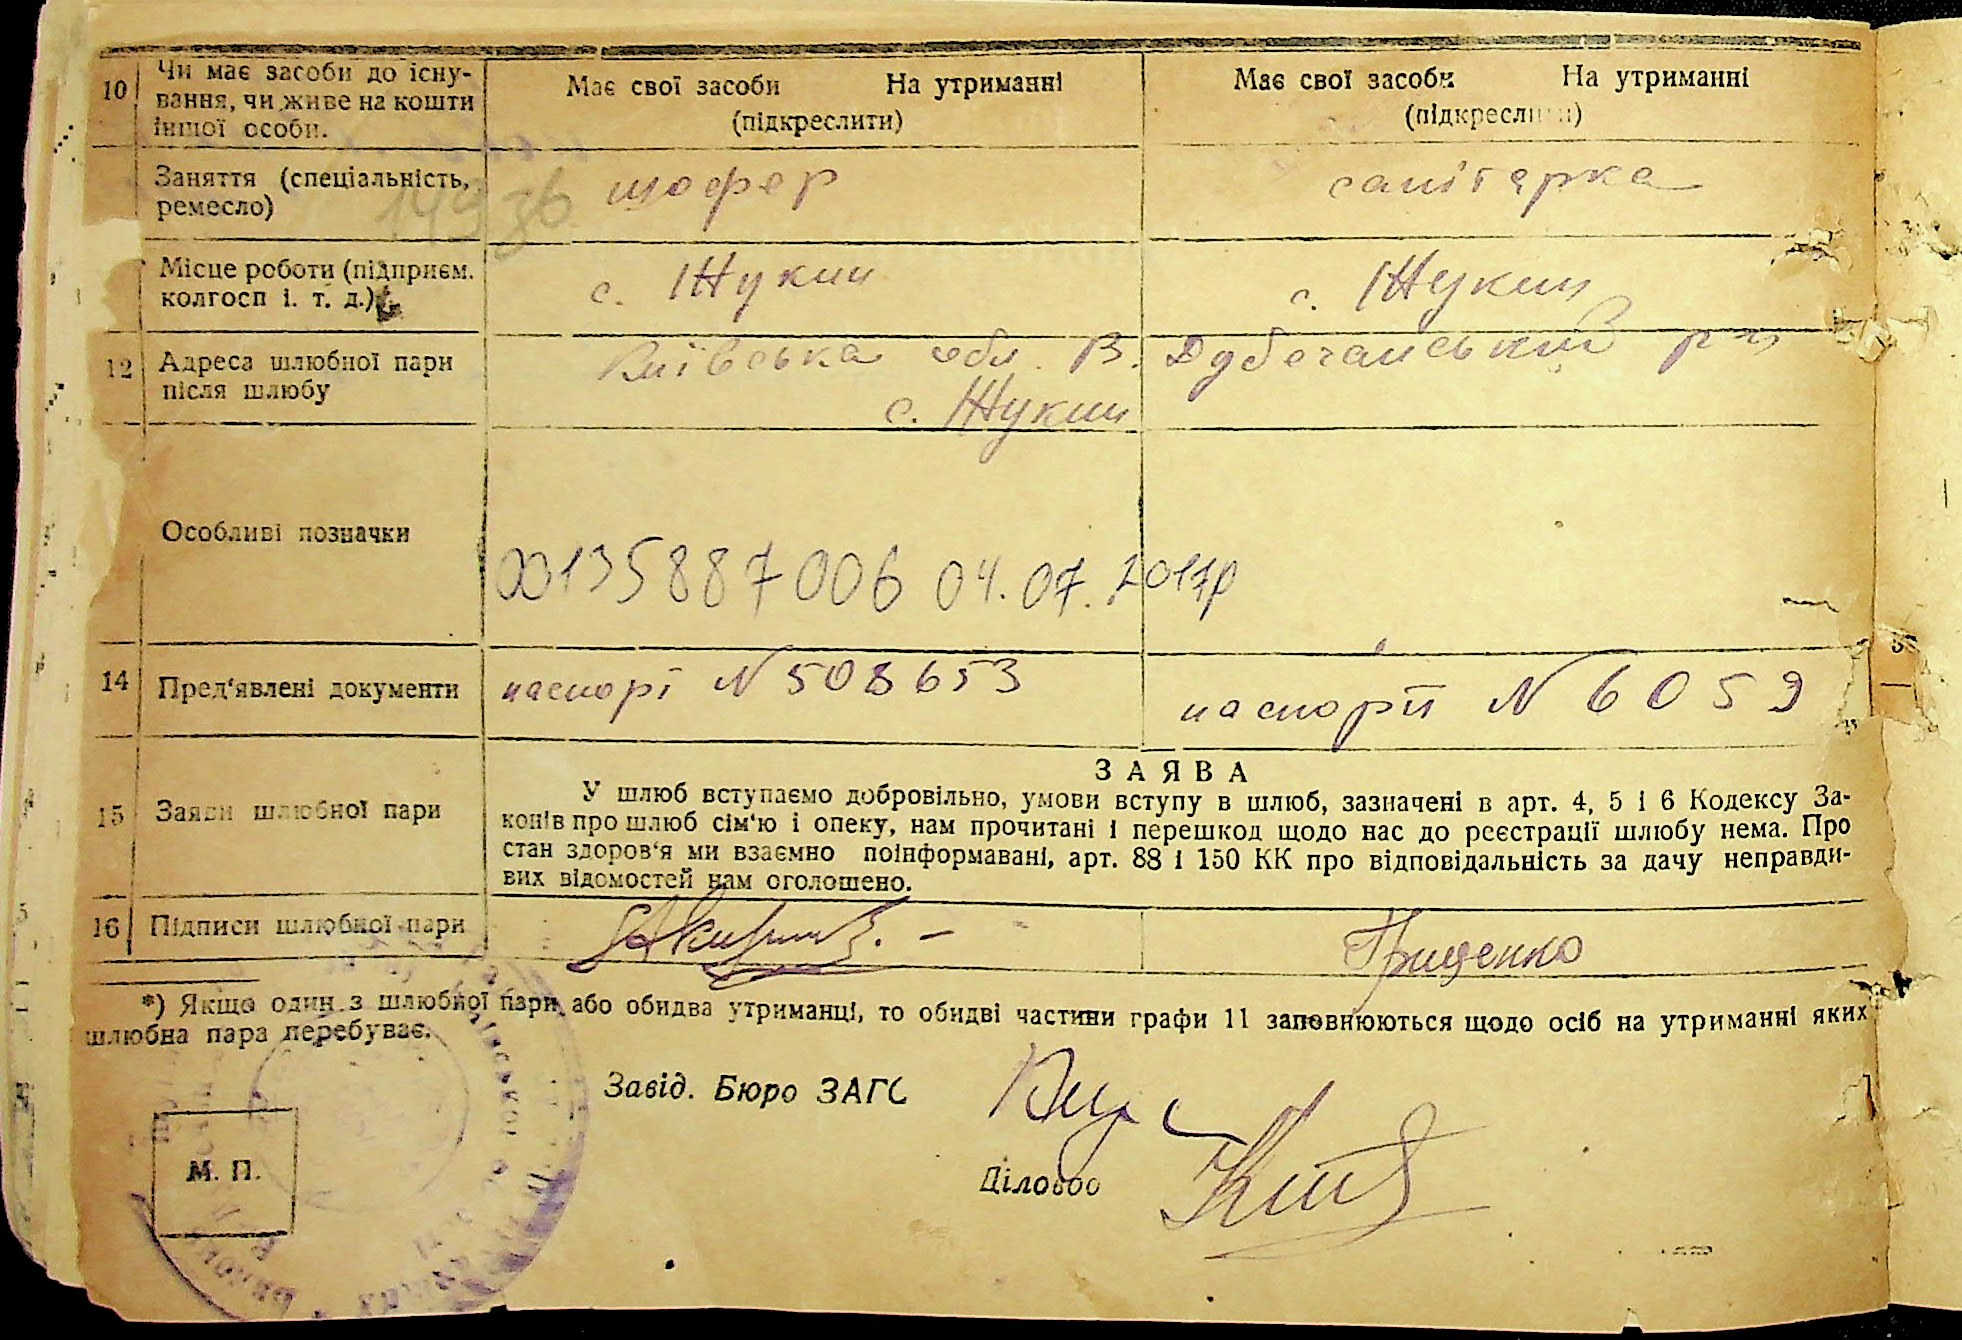 10 Чи має засоби до існу-
вання, чи живе на кошти
іншої особи.
Має свої засоби На утриманні
(підкреслити)
Має свої засоби На утриманні
(підкреслити)
Заняття (спеціальність,
ремесло)
шофер
санітарка
Місце роботи (підприєм.
колгосп і. т. д.)
с. Жукин
с. Жукин
12 Адреса шлюбної пари
після шлюбу
Київська обл. В. Дубечанський р-н
с. Жукин
Особливі позначки
00135887006 04.07.2017р
14 Пред'явлені документи
паспорт N 508653
паспорт N 6059
15 Заяви шлюбної пари
ЗАЯВА
У шлюб вступаємо добровільно, умови вступу в шлюб, зазначені в арт. 4, 5 і 6 Кодексу За-
конів про шлюб сім'ю і опеку, нам прочитані і перешкод щодо нас до реєстрації шлюбу нема. Про
стан здоров'я ми взаємно поінформавані, арт. 88 і 150 КК про відповідальність за дачу неправди-
вих відомостей нам оголошено.
16 Підписи шлюбної пари
Гриценко
*) Якщо один з шлюбної пари або обидва утриманці, то обидві частини графи 11 заповнюються щодо осіб на утриманні яких
шлюбна пара перебуває.
Завід. Бюро ЗАГС
М. П.
Діловод